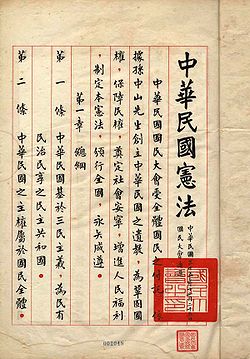 中華民國憲法
中華民國三
國民大會
中華民國國民大會受全體國民之付託，依
據孫中山先生創立中華民國之遺教，為鞏固國
權，保障民權，奠定社會安寧，增進人民福利
，制定本憲法，頒行全國，永矢咸遵。
第一章 總綱
第一條 中華民國基於三民主義，為民有
民治民享之民主共和國。
第二條 中華民國之主權屬於國民全體。